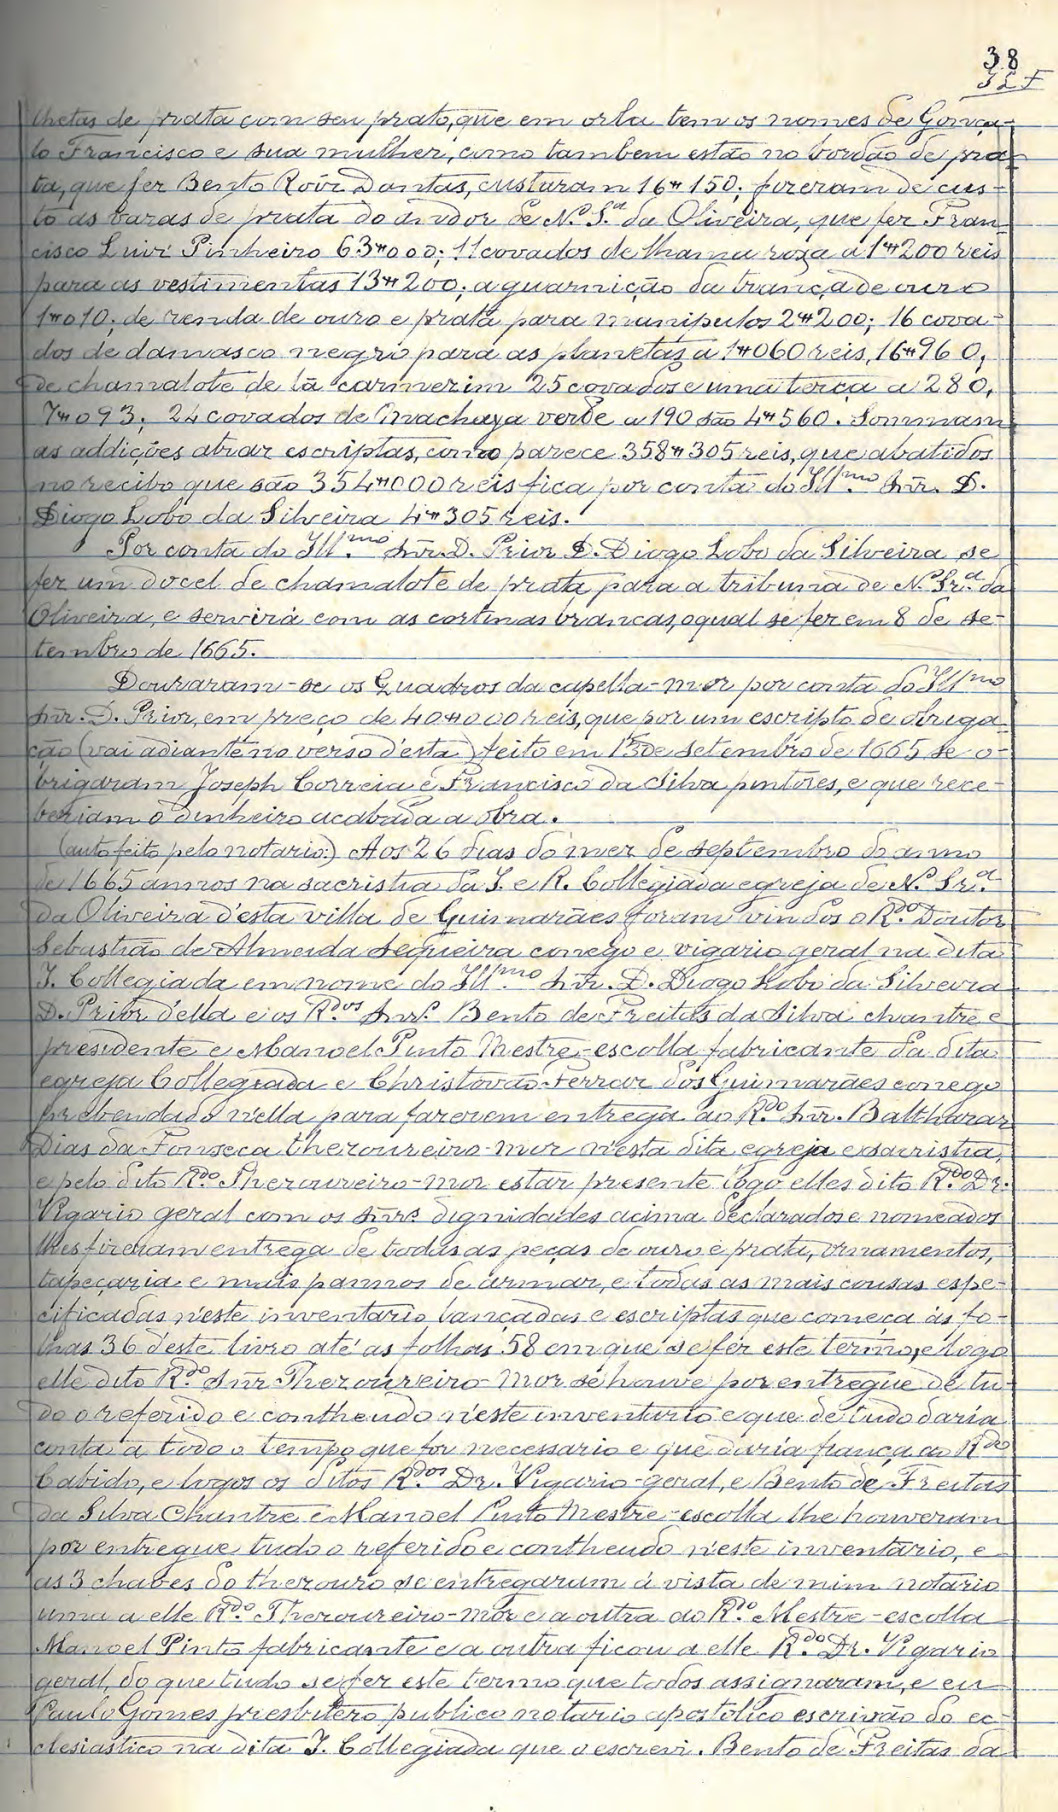 38
J L F
lhetas de prata com seu prato, que em orla tem os nomes de Gonça-
lo Francisco e sua mulher, como tambem estão no bordão de pra-
ta, que fez Bento Roĩz Dantas, custaram 16#150; fizeram de cus-
to as varas de prata do andor de N.ª S.ª da Oliveira, que fez Fran-
cisco Luiz Pinheiro 63#000; 11 covados de lhama roza a 1#200 reis
para as vestimentas 13#200; a guarnição da trança de ouro
1#010; de renda de ouro e prata para manipulos 2#200; 16 cova-
dos de damasco negro para as planetas a 1#060 reis, 16#960;
de chamalote de lã carmezim 25 covados e uma terça a 280,
7#093; 24 covados de verde a 190 são 4#560. Sommam
as addições atraz escriptas, como parece 358#305 reis, que abatidos
no recibo que são 354#000 reis fica por conta do Ill.mo Snr. D.
Diogo Lobo da Silveira 4#305 reis.
Por conta do Ill.mo Snr. D. Prior D. Diogo Lobo da Silveira se
fez um docel de chamalote de prata para a tribuna de N.ª Sr.ª da
Oliveira, e servirá com as cortinas brancas, o qual se fez em 8 de se-
tembro de 1665.
Douraram-se os Quadros da capella-mor por conta do Ill.mo
Snr. D. Prior, em preço de 40#000 reis, que por um escripto de obriga-
ção (vai adiante no verso d'esta) feito em de setembro de 1665 se o-
brigaram Joseph Correia e Francisco da Silva pintores, e que rece-
beriam o dinheiro acabada a obra.
(auto feito pelo notario:) Aos 26 dias do mez de septembro do anno
de 1665 annos na sacristia da I. e R. Collegiada egreja de N.ª Sr.ª
da Oliveira d'esta villa de Guimarães foram vindos o R.do Doutor
Sebastião de Almeida Sequeira conego e vigario geral na dita
I. Collegiada em nome do Ill.mo Snr. D. Diogo Lobo da Silveira
D. Prior d'ella e os R.dos Snrs. Bento de Freitas da Silva chantre e
presidente e Manoel Pinto Mestre-escolla fabricante da dita
egreja Collegiada e Christovão Ferraz dos Guimarães conego
prebendado n'ella para fazerem entrega ao R.do Snr. Balthazar
Dias da Fonseca thezoureiro-mor n'esta dita egreja e sacristia,
e pelo dito R.do Thezoureiro-mor estar presente logo elles dito R.do Dr.
Vigario geral com os Snrs. dignidades acima declarados e nomeados
lhes fizeram entrega de todas as peças de ouro e prata, ornamentos,
tapeçaria e mais pannos de armar, e todas as mais cousas espe-
cificadas n'este inventario lançadas e escriptas que começa ás fo-
lhas 36 d'este livro até as folhas 58 em que se fez este termo, e logo
elle dito R.do Snr. Thezoureiro-Mor se houve por entregue de tu-
do o referido e contheudo n'este inventario e que de tudo daria
conta a todo o tempo que for necessario e que daria fiança ao R.do
Cabido, e logos os ditos R.dos Dr. Vigario-geral, e Bento de Freitas
da Silva Chantre e Manoel Pinto Mestre-escolla lhe houveram
por entregue tudo o referido e contheudo n'este inventario, e
as 3 chaves do thezouro se entregaram á vista de mim notario
uma a elle R.do Thezoureiro-mor e a outra ao R.do Mestre-escolla
Manoel Pinto fabricante e a outra ficou a elle R.do Dr. Vigario
geral, do que tudo se fez este termo que todos assignaram, e eu
Paulo Gomes presbitero publico notario apostolico escrivão do ec-
clesiastico na dita I. Collegiada que o escrevi. Bento de Freitas da